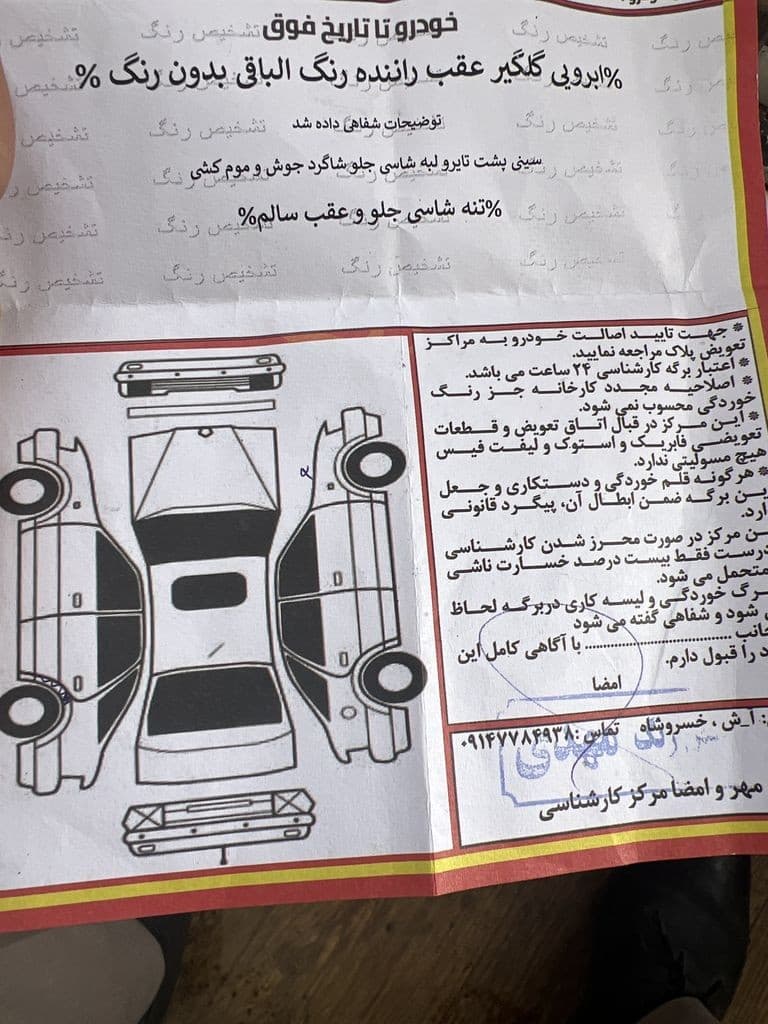 خودرو تا تاریخ فوق
%ابرویی گلگیر عقب راننده رنگ الباقی بدون رنگ %
توضیحات شفاهی داده شد
سینی پشت تایرو لبه شاسی جلو شاگرد جوش و موم کشی
%تنه شاسی جلو و عقب سالم%
تشخیص رنگ
* جهت تایید اصالت خودرو به مراکز
تعویض پلاک مراجعه نمایید.
* اعتبار برگه کارشناسی ۲۴ ساعت می باشد.
* اصلاحیه مجدد کارخانه جز رنگ
خوردگی محسوب نمی شود.
* این مرکز در قبال اتاق تعویض و قطعات
تعویضی فابریک و استوک و لیفت فیس
هیچ مسولیتی ندارد.
* هرگونه قلم خوردگی و دستکاری و جعل
ین برگه ضمن ابطال آن، پیگرد قانونی
ارد.
ن مرکز در صورت محرز شدن کارشناسی
درست فقط بیست درصد خسارت ناشی
متحمل می شود.
رگ خوردگی و لیسه کاری دربرگه لحاظ
شود و شفاهی گفته می شود
جانب .................................... با آگاهی کامل این
د را قبول دارم.
امضا
: آ_ش ، خسروشاه تماس :۰۹۱۴۷۷۸۴۹۳۸
مهر و امضا مرکز کارشناسی